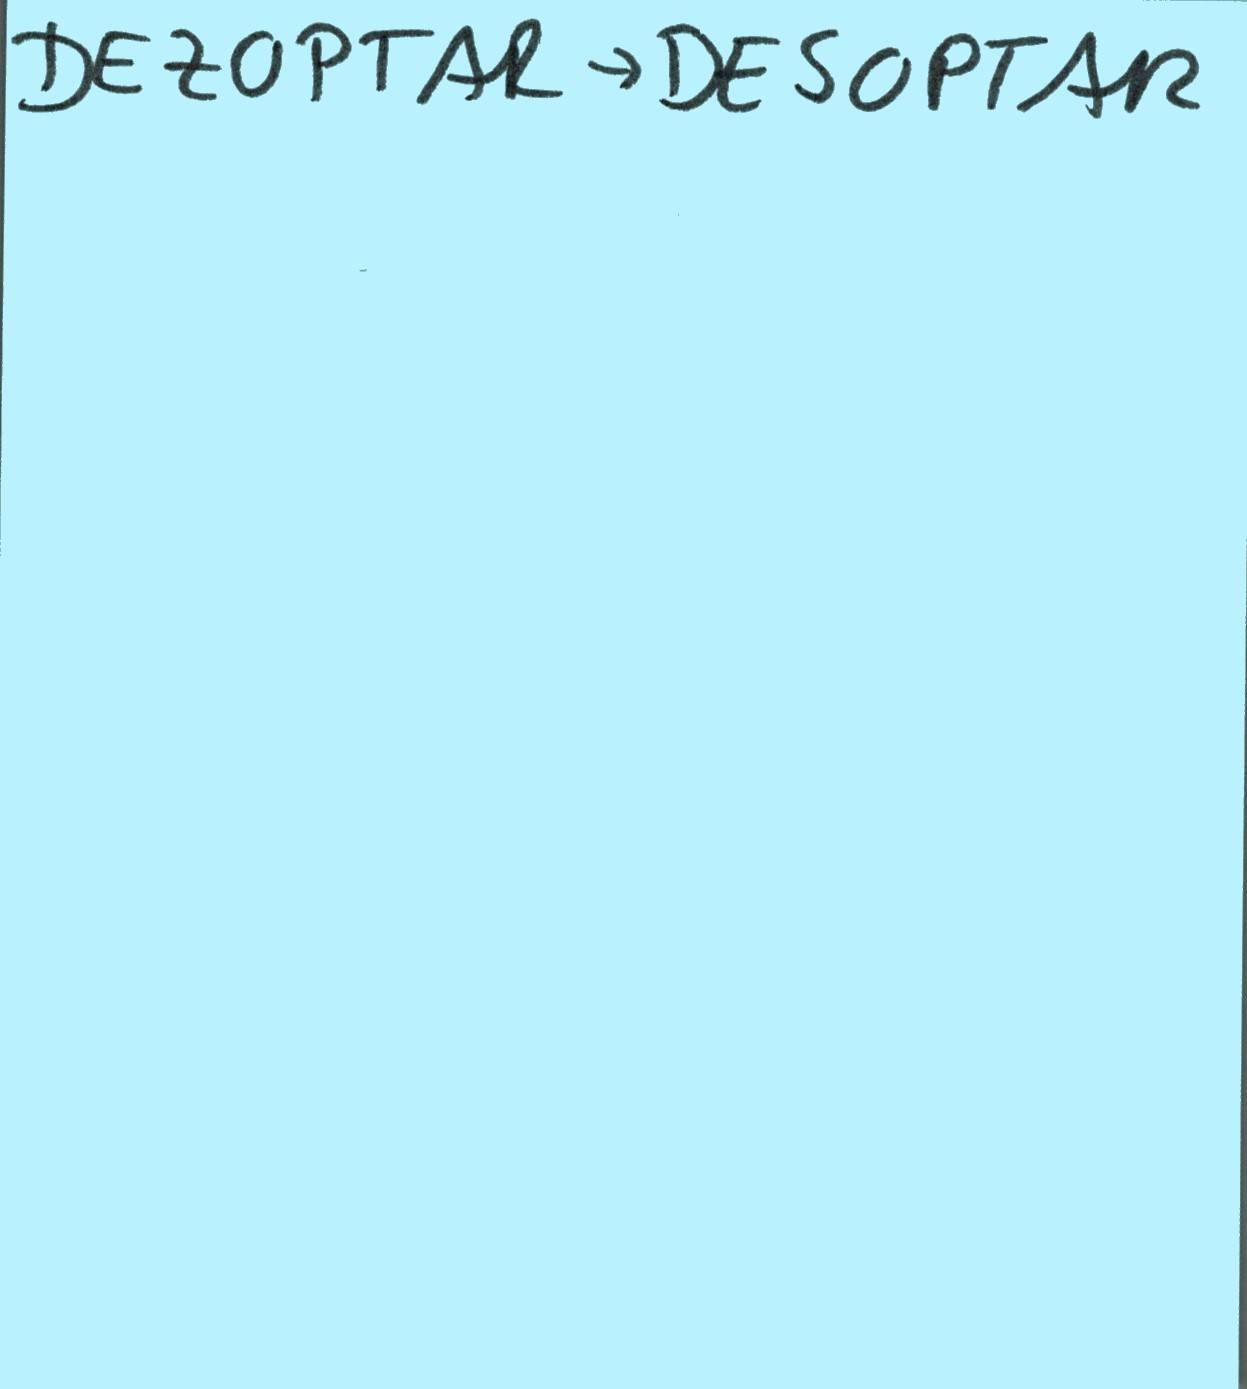 DEZOPTAR → DESOPTAR